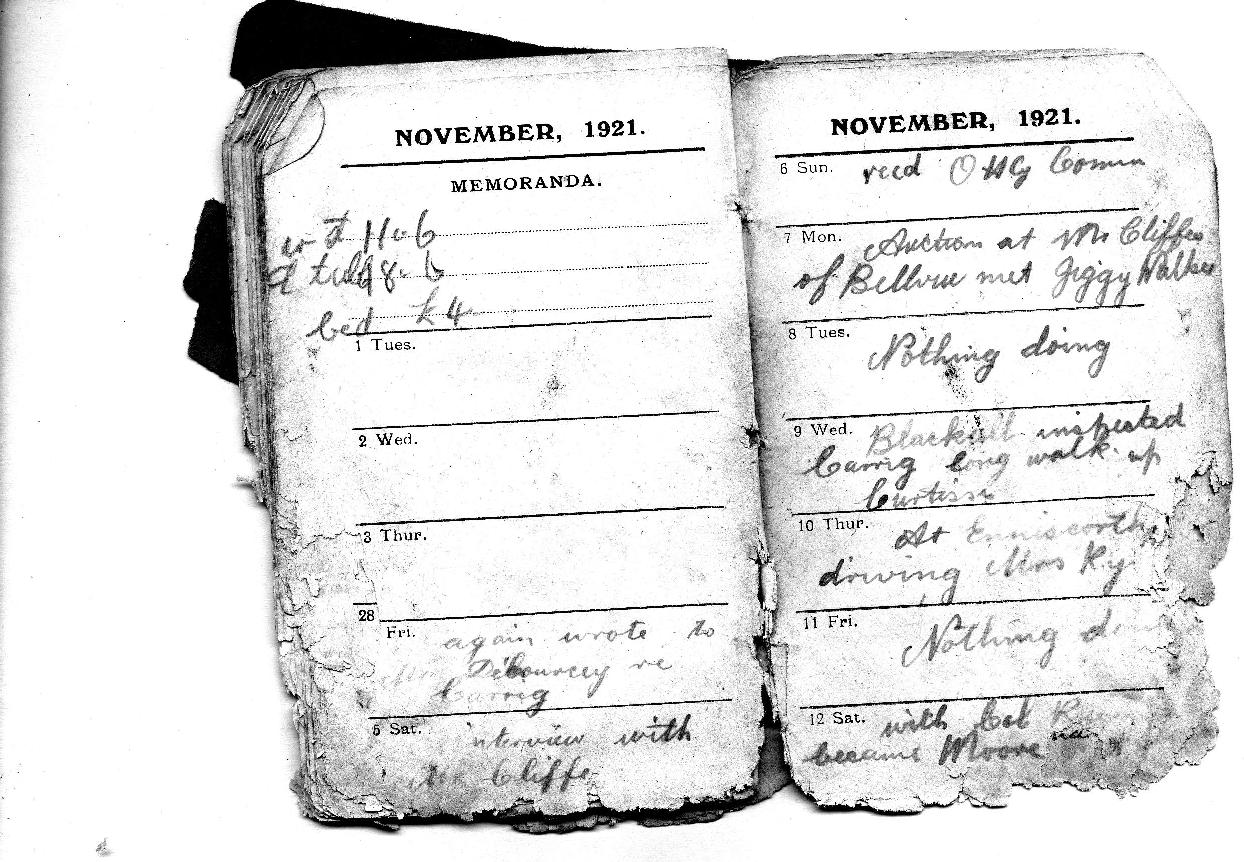 NOVEMBER, 1921.
MEMORANDA.
bed £4
1 Tues.
2 Wed.
3 Thur.
28
Fri. again wrote to
Debourcey re
Carrig
5 Sat. interview with
Cliffe
NOVEMBER, 1921.
6 Sun. recd
7 Mon. Auction at Mr Cliffes
of Bellvue met Jiggy Walker
8 Tues. Nothing doing
9 Wed. Blackall inspected
Carrig long walk up
10 Thur. At Enniscorthy
driving Mrs
11 Fri. Nothing
12 Sat. with Col
became Moore